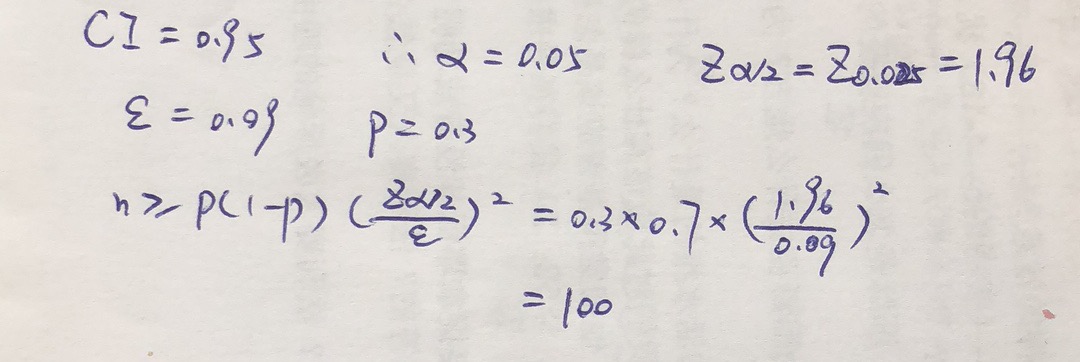 CI = 0.95 ∴ α = 0.05 Zα/2 = Z0.025 = 1.96
ε = 0.09 P = 0.3
n ≥ P(1-p) (Zα/2 / ε)² = 0.3 × 0.7 × (1.96 / 0.09)²
= 100